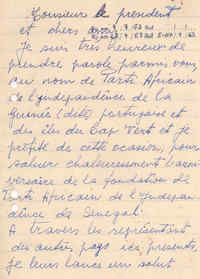 Monsieur le président
et chers
Je suis très heureux de
prendre parole parmis vous
au nom de Parti Africain
de l'Independence de la
Guinée (dite) portugaise et
des îles du Cap Vert et je
profite de cette ocasion, pour
saluer chaleureusement l'anni-
versaire de la fondation de
Parti Africain de l'Indepen-
dence du Senegal.
A travers les représentant
des autres pays ide presents,
je leur lance un salut